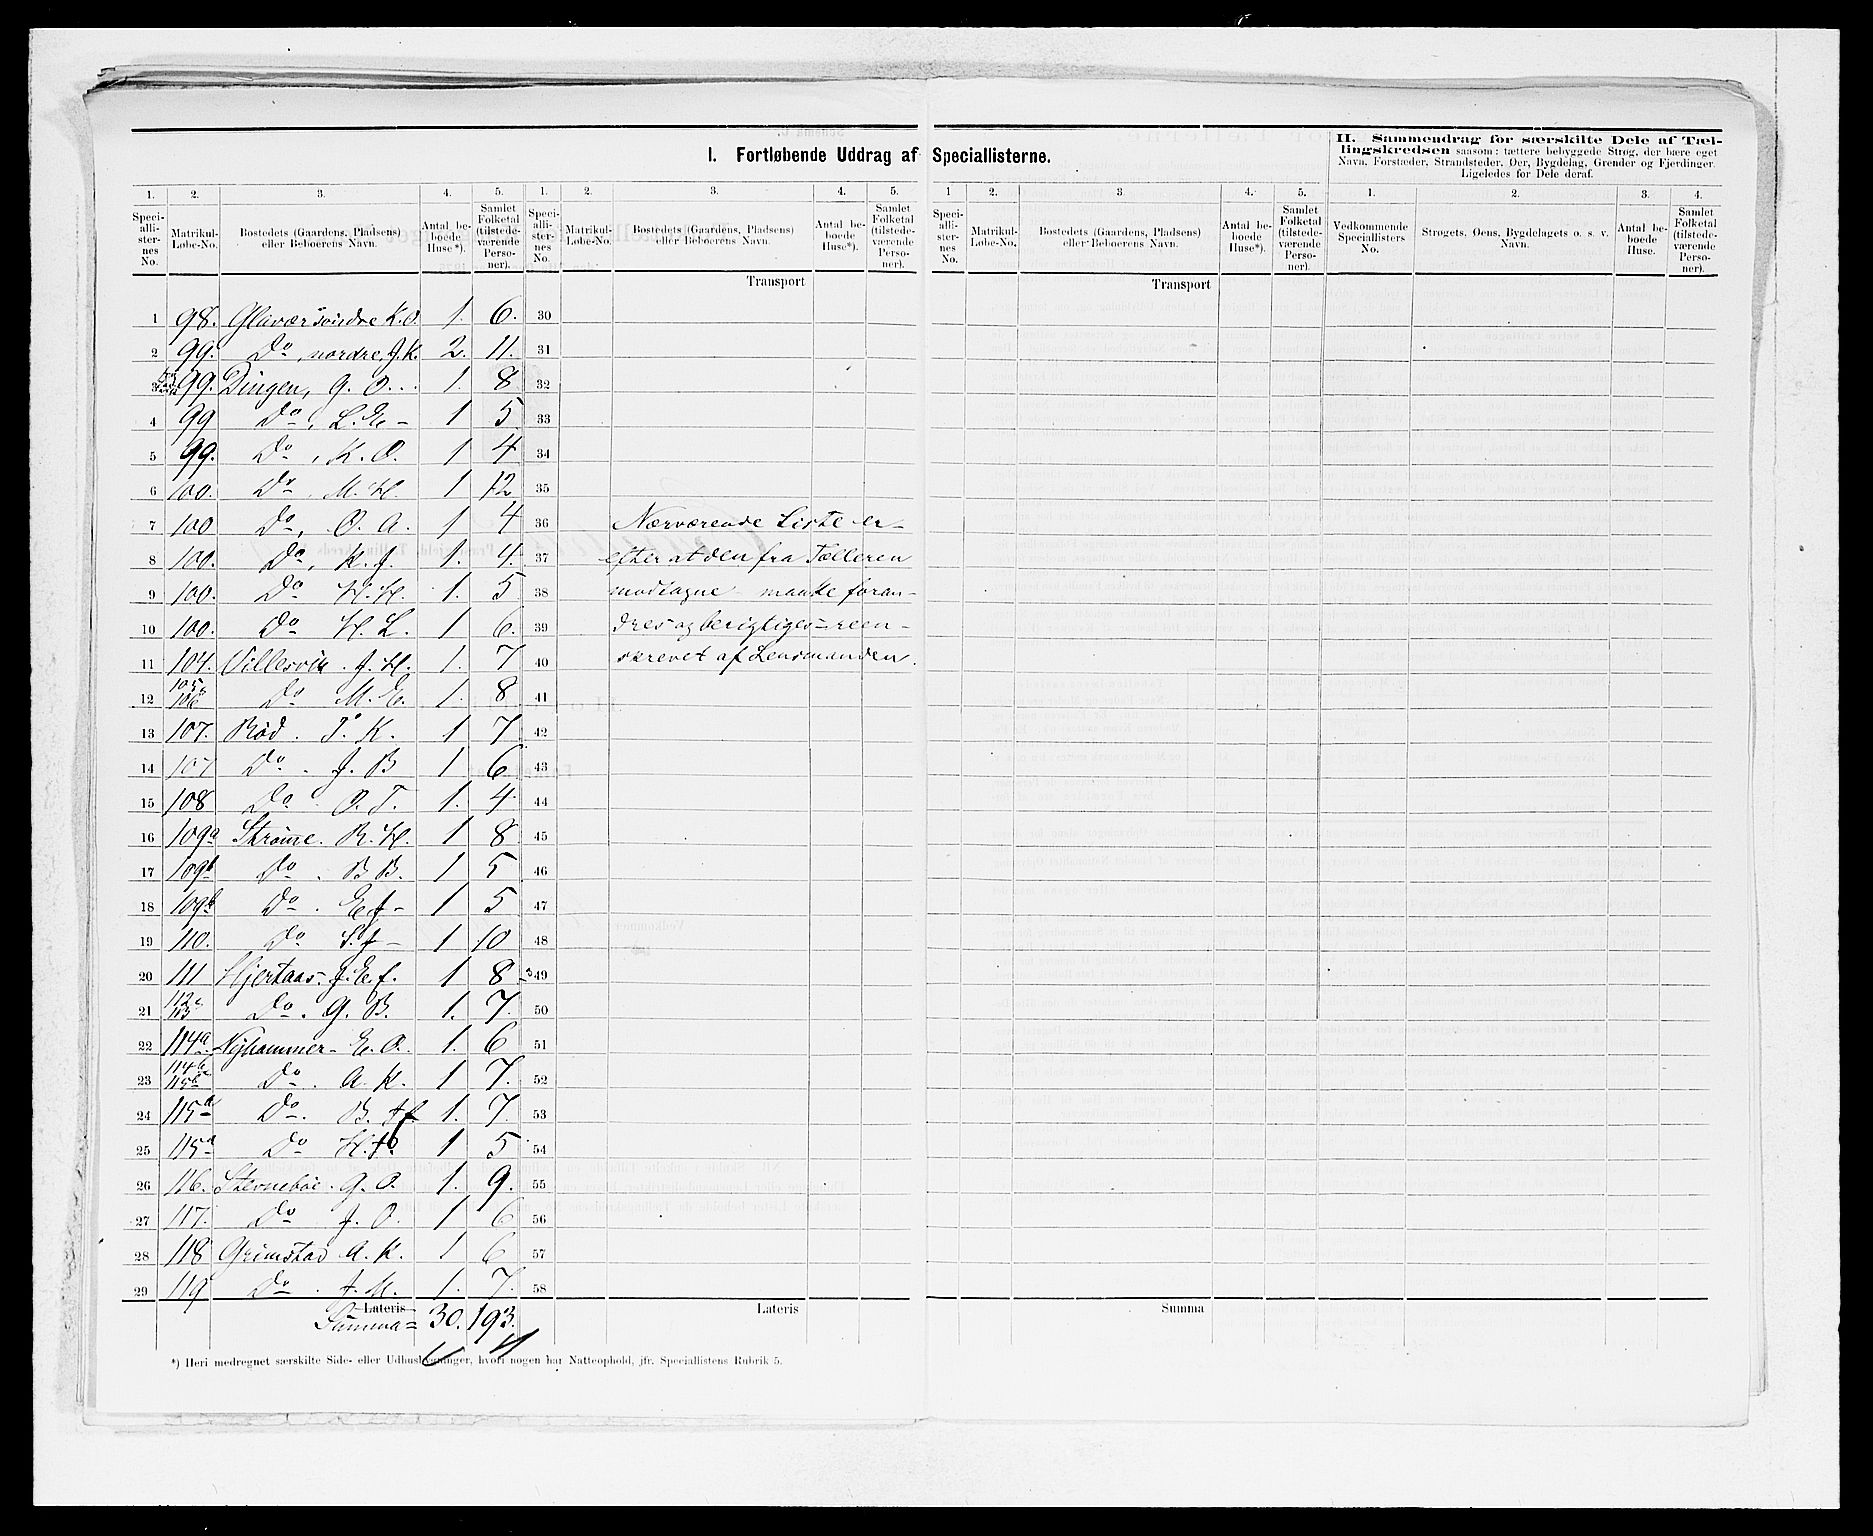 I. Fortløbende Uddrag af Speciallisterne.
II. Sammendrag for særskilte Dele af Tæl-
lingskredsen saasom: tættere bebyggede Strøg, der bære eget
Navn, Forstæder, Strandsteder, Øer, Bygdelag, Grender og Fjerdinger.
Ligeledes for Dele deraf.
1. 2. 3. 4. 5. 1. 2. 3. 4. 5. 1 2. 3. 4. 5. 1. 2. 3. 4.
Speciallisternes No. Matrikul-Løbe-No. Bostedets (Gaardens, Pladsens) eller Beboerens Navn. Antal beboede Huse*). Samlet Folketal (tilstedeværende Personer).
Speciallisternes No. Matrikul-Løbe-No. Bostedets (Gaardens, Pladsens) eller Beboerens Navn. Antal beboede Huse*). Samlet Folketal (tilstedeværende Personer).
Speciallisternes No. Matrikul-Løbe-No. Bostedets (Gaardens, Pladsens) eller Beboerens Navn. Antal beboede Huse*). Samlet Folketal (tilstedeværende Personer).
Vedkommende Speciallisters No. Strøgets, Øens, Bygdelagets o. s. v. Navn. Antal beboede Huse. Samlet Folketal (tilstedeværende Personer).
Transport Transport
1 98. Glavær søndre K. O. 1. 6. 30
2 99. Do, nordre, J. K. 2. 11. 31
3 99. Dingen, G. O. 1. 8 32
4 99 Do, L. E. 1 5 33
5 99. Do, K. O. 1 4 34
6 100. Do, M. H. 1 12 35
7 100 Do, O. A. 1 4 36 Nærværende Liste er
8 100. Do, K. J. 1. 4. 37 efter at den fra Tælleren
9 100. Do H. H. 1. 5 38 modtagne maatte foran-
10 100. Do H. L. 1 6. 39 dres og berigtiges reen-
11 104. Villesvik. J. H. 1. 7 40 skrevet af Lensmanden.
12 105, 106 Do M. E. 1. 8 41
13 107. Rød. T. K. 1 7 42
14 107 Do. J. B 1 6 43
15 108 Do. O. T. 1. 4 44
16 109a Strømme. R. H. 1 8 45
17 109b Do. B B. 1 5 46
18 109b Do. E J 1 5 47
19 110. Do S. J 1 10 48
20 111 Hjertaas. J. E. f. 1 8 49
21 112, 113 Do. G. B. 1. 7. 50
22 114a Nyhammer E. O. 1. 6 51
23 114b 115b Do. A. K. 1 7. 52
24 115a Do. B. 1. 7. 53
25 115a Do H. 1 5 54
26 116. Sternebøe. G. O. 1. 9. 55
27 117. Do J. O. 1 6 56
28 118 Grimstad A. K. 1 6 57
29 119 Do. J. M. 1. 7. 58
Lateris Lateris Summa
Summa = 30. 193.
*) Heri medregnet særskilte Side- eller Udhusbygninger, hvori nogen har Natteophold, jfr. Speciallistens Rubrik 5.